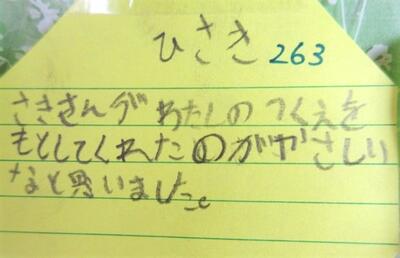 ひさき 263
ささきさんがわたしのつくえを
もどしてくれたのがやさしい
なと思いました。